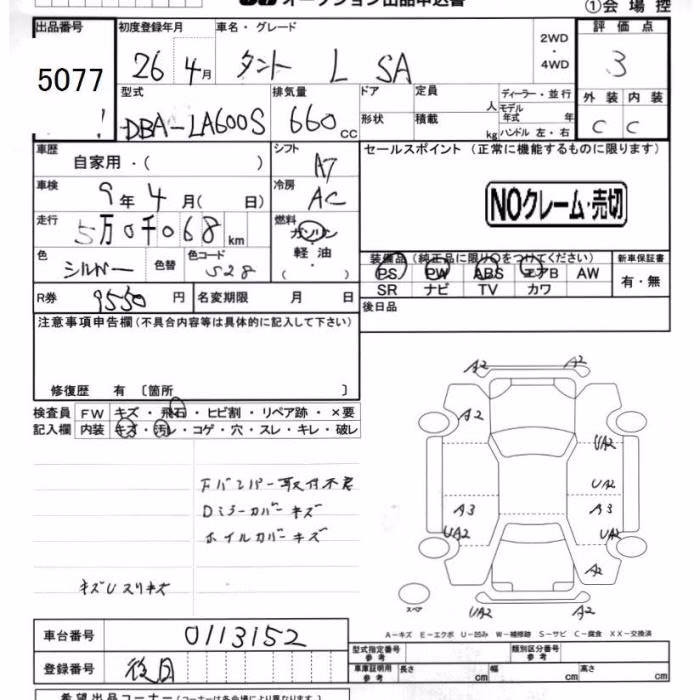 オークション出品申込書
①会場控
出品番号
5077
!
初度登録年月
26年 4月
車名・グレード
タント L SA
2WD
・
4WD
評価点
3
外装 内装
C C
型式
DBA-LA600S
排気量
660 CC
ドア
形状
定員
人
積載
kg
ディーラー・並行
モデル
年式 年
ハンドル 左・右
車歴
自家用・( )
シフト
A7
セールスポイント (正常に機能するものに限ります)
NOクレーム・売切
車検
9年 4月( 日)
冷房
AC
走行
5万0千068 km
燃料
ガソリン
軽油
( ・ )
色
シルバー
色替
色コード
S28
装備品 (純正品に限り○をつけてください)
PS PW ABS エアB AW
SR ナビ TV カワ
新車保証書
有・無
R券
9550円
名変期限 月 日
後日品
注意事項申告欄(不具合内容等は具体的に記入して下さい)
修復歴 有 〔箇所 〕
検査員
記入欄
FW キズ・飛石・ヒビ割・リペア跡・×要
内装 キズ・汚レ・コゲ・穴・スレ・キレ・破レ
Fバンパー取付不良
Dミラーカバーキズ
ホイルカバーキズ
キズUスリキズ
A2 A2
A2
UA2
UA2
A3 A3
UA2 UA2
A2
UA2 A2
スペア
A-キズ E-エクボ U-凹み W-補修跡 S-サビ C-腐食 XX-交換済
車台番号
0113152
登録番号
後日
型式指定番号
参考
類別区分番号
参考
車庫証明用
参考
長さ cm 幅 cm 高さ cm
希望出品コーナー(コーナーは各会場により異なります。)